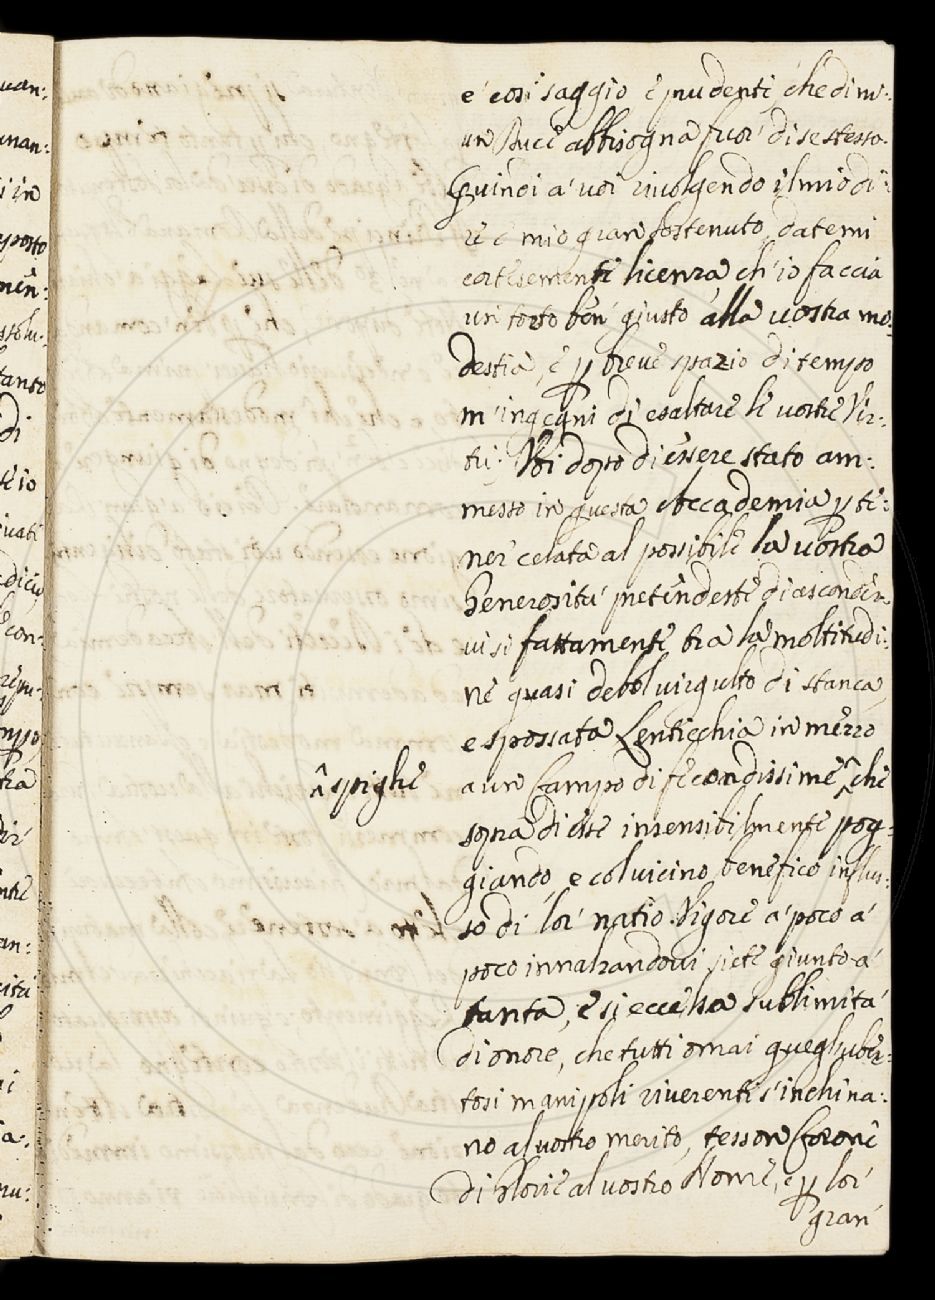 è così saggio, è prudente che di ni:
un Duce abbisogna fuor di se stesso.
Quindi a' voi rivolgendo il mio di:
re è mio gran sostenuto, datemi
cortesemente licenza, ch'io faccia
un torto ben giusto alla vostra mo:
destia, è p breve spazio di tempo
m'ingegni di esaltare le vostre Vir:
tù. Voi dopo di essere stato am:
messo in questa Accademia p te:
ner celata al possibile la vostra
Generosità pretendeste di asconder
vi si fattamente tra la moltitudi:
ne quasi debol virgulto di stanca,
e spossata Lenticchia in mezzo
a un Campo di fecondissime ^ che
^ spighe
sopra di esse insensibilmente pog:
giando, e col vicino benefico influs:
so di lor natio Vigore a' poco a'
poco innalzandovi siete giunto a'
tanta, e si eccelsa sublimità
di onore, che tutti omai quegl'uber:
tosi manipoli riverenti s'inchina:
no al vostro merito, tesson Corone
di Glorie al vostro Nome, e p lor
gran
uan:
unan:
i in
mposto
men:
tanto
di
te io
ivati
e con:
tra
dir
nte
an:
cità
i